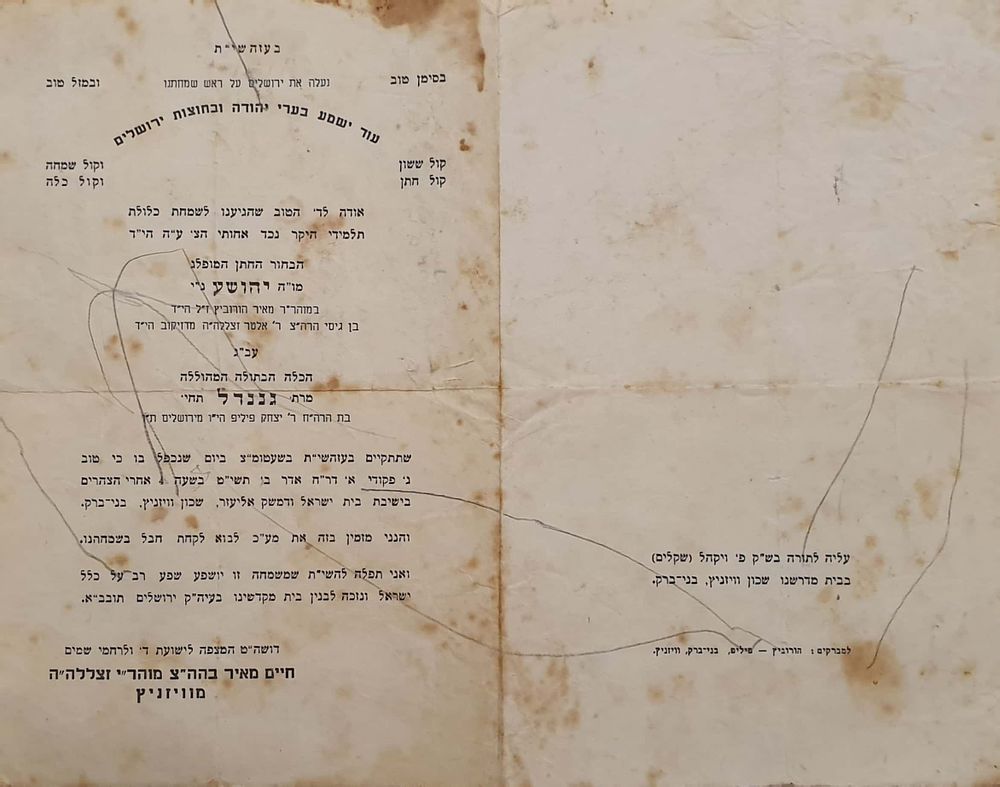 בעזהשי״ת
בסימן טוב נעלה את ירושלים על ראש שמחתנו ובמזל טוב
עוד ישמע בערי יהודה ובחוצות ירושלים
קול ששון וקול שמחה
קול חתן וקול כלה
אודה לד׳ הטוב שהגיענו לשמחת כלולת
תלמידי היקר נכד אחותי הצ׳ ע״ה הי״ד
הבחור החתן המופלג
מו״ה יהושע ני״
במוהר״ר מאיר הורוביץ ז״ל הי״ד
בן גיסי הרה״צ ר׳ אלטר זצללה״ה מדזיקוב הי״ד
עב״ג
הכלה הבתולה המהוללה
מרת גננדל תחי׳
בת הרה״ח ר׳ יצחק פיליפ הי״ו מירושלים ת״ו
שתתקיים בעזהשי״ת בשעטומ״צ ביום שנכפל בו כי טוב
ג׳ פקודי א׳ דר״ח אדר ב׳ תשי״ט בשעה אחרי הצהרים
בישיבת בית ישראל ודמשק אליעזר, שכון וויזניץ, בני־ברק.
והנני מזמין בזה את מע״כ לבוא לקחת חבל בשמחתנו.
ואני תפלה להשי״ת שמשמחה זו יושפע שפע רב על כלל
ישראל ונזכה לבנין בית מקדשינו בעיה״ק ירושלים תובב״א.
דושה״ט המצפה לישועת ד׳ ולרחמי שמים
חיים מאיר בהה״צ מוהר״י זצללה״ה
מוויזניץ
עליה לתורה בש״ק פ׳ ויקהל (שקלים)
בבית מדרשנו שכון וויזניץ, בני־ברק.
למברקים: הורוביץ — פיליפ, בני־ברק, וויזניץ.